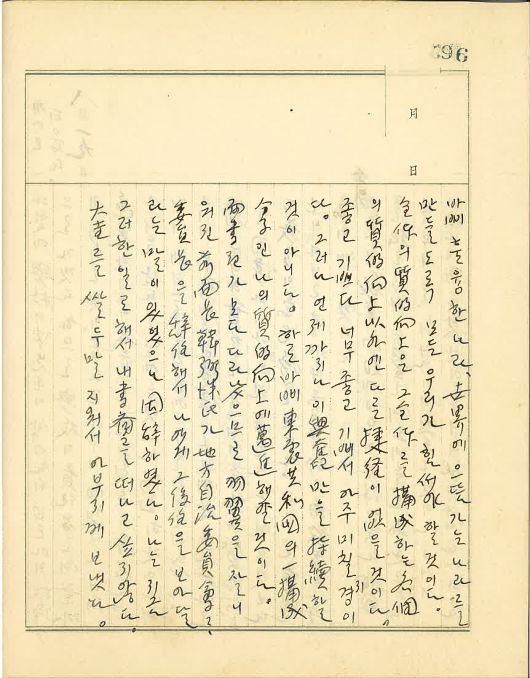 96
月
日
바삐 훌륭한 나라, 世界에 으뜸가는 나라를
만들도록 모든 우리가 힘써야 할 것이다.
全体의 質的向上은 그 全体를 構成하는 各個
의 質的向上 以外엔 다른 捷徑이 없을 것이다.
좋고 기쁘다 너무 좋고 기뻐서 아주 미칠 경이
다. 그러나 언제까지나 이 興奮만을 持續할
것이 아니다. 하로 바삐 東震共和國의 一構成
分子인 나의 質的向上에 邁進해야 할 것이다.
面書記가 모다 다라났으므로 羽翼을 잘리
워진 前面長 韓弼 氏가 地方自治委員會
委員長을 辭任해서 나에게 그 後任을 보아달
라는 말이 있었으나 固辭하였다. 나는 지금
그러한 일로 해서 내 書齋를 떠나고 싶지 않다.
大 를 쌀 두 말 지워서 아부지께 보냈다.